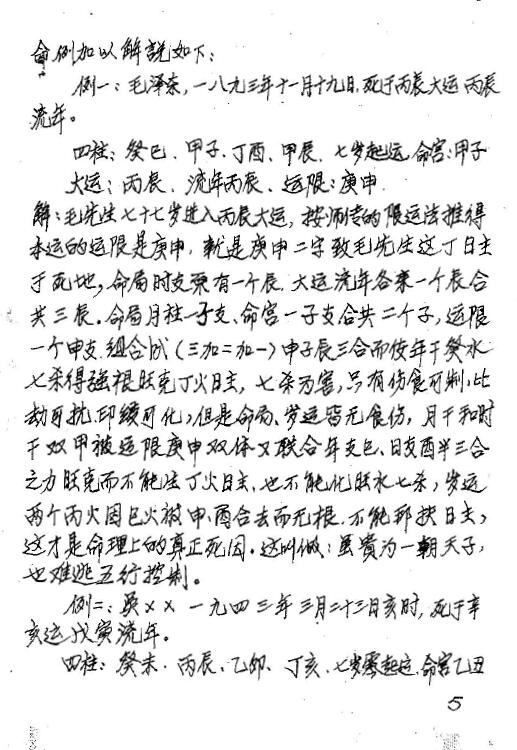 命例加以解説如下：
例一：毛泽东，一八九三年十一月十九日，死于丙辰大运丙辰
流年。
四柱：癸巳．甲子．丁酉．甲辰．七岁起运．命宫：甲子
大运：丙辰．流年丙辰．运限：庚申．
解：毛先生七十七岁进入丙辰大运，按师传的限运法推得
本运的运限是庚申．就是庚申二字致毛先生这丁日主
于死地，命局时支原有一个辰．大运流年各来一个辰合
共三辰．命局月柱一子支、命宫一子支合共二个子，运限
一个申支．组合成（三加二加一）申子辰三合而使年干癸水
七杀得强根旺克丁火日主，七杀为害，只有伤食可制，比
劫可抗．印绶可化，但是命局、岁运皆无食伤，月干和时
干双甲被运限庚申双体又联合年支巳、日支酉半三合
之力旺克而不能生丁火日主．也不能化旺水七杀，岁运
两个丙火因巳火被申、酉合去而无根．不能帮扶日主，
这才是命理上的真正死因．这叫做：虽贵为一朝天子，
也难逃五行控制。
例二：吴××一九四三年三月二十三日亥时，死于辛
亥运戊寅流年。
四柱：癸未．丙辰、乙卯、丁亥．七岁零起运．命宫乙丑
5